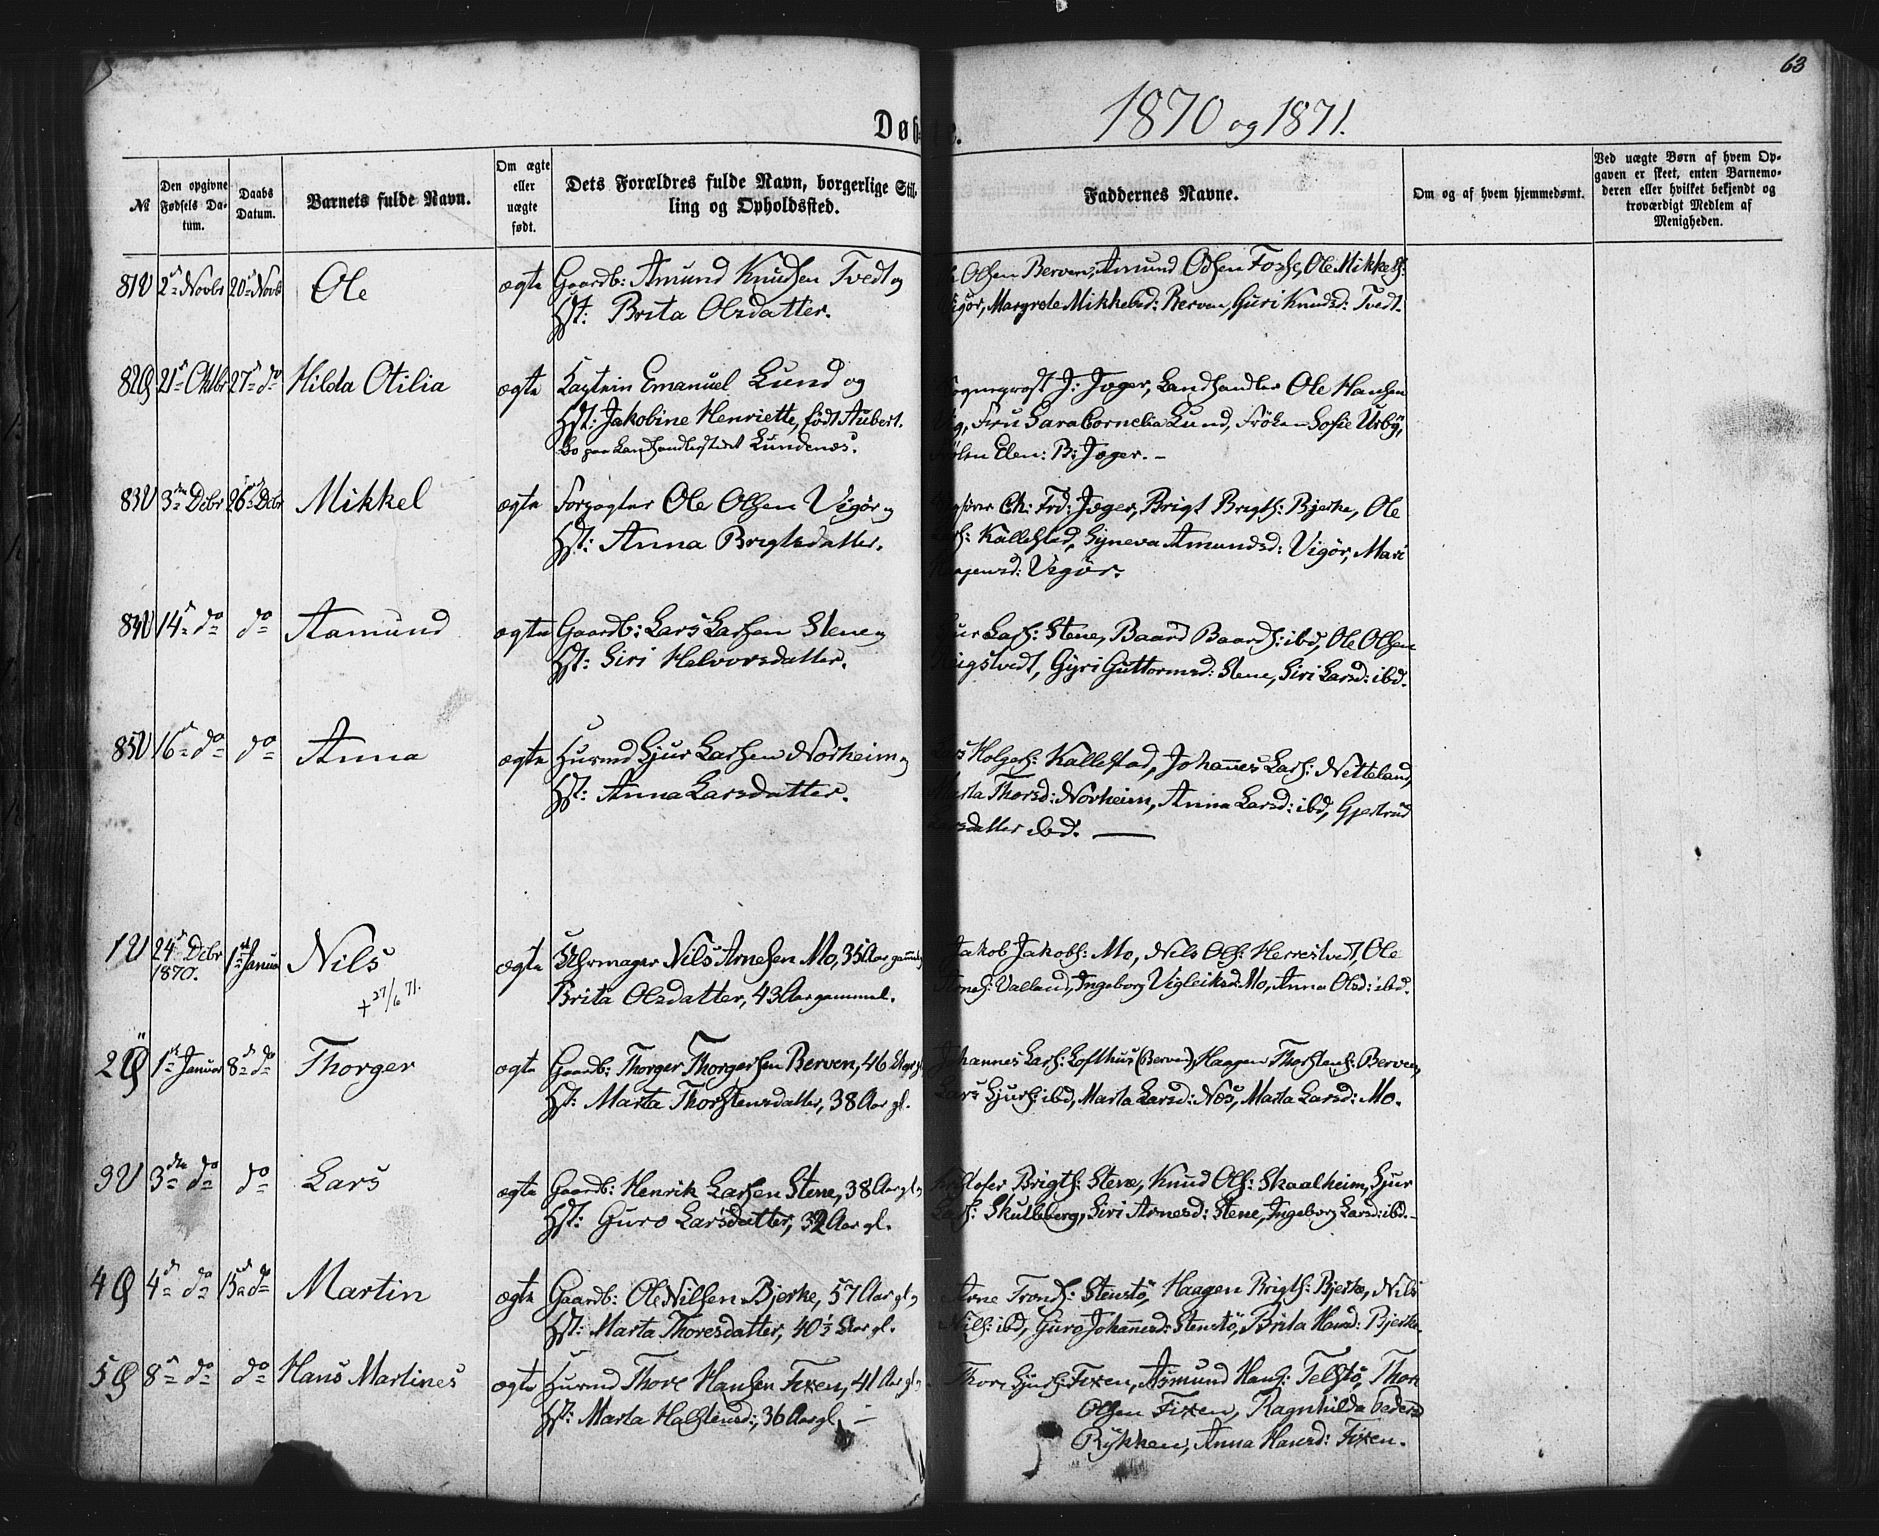 63
Døb
1870 og 1871.
№
Den opgivne Fødsels Da-
tum.
Daabs
Datum.
Barnets fulde Navn.
Om ægte
eller
uægte
født.
Dets Forældres fulde Navn, borgerlige Stil-
ling og Opholdssted.
Faddernes Navne.
Om og af hvem hjemmedøbt.
Ved uægte Børn af hvem Op-
gaven er skeet, enten Barnemo-
deren eller hvilket bekjendt og
troværdigt Medlem af
Menigheden.
81 2d Novbr 20d Novb Ole ægte Gaardb: Amund Knudsen Tvedt og
Hst: Brita Olsdatter.
Olsen Berven, Amund Odsen Fosse, Ole Mikkels:
Vigør, Margrete Mikkelsd: Berven, Guri Knudsd: Tvedt.
82 21d Oktbr 27d do Hilda Otilia ægte Kaptein Emanuel Lund og
Hst: Jakobine Henriette, født Aubert.
Bo paa Landhandlerstedet Lundenæs.
Sogneprost J: Jæger, Landhandler Ole Hansen
Vig, Fru Sara Cornelia Lund, Frøken Sofie Urbÿ,
Frøken Elen: B: Jæger. -
83 3die Debr 26d Debr Mikkel ægte Forpagter Ole Olsen Vigør og
Hst: Anna Brigtsdatter.
Ch: Frd: Jæger, Brigt Brigts: Bjerke, Ole
Lars: Kallestad, Syneva Amundsd: Vigør, Mari
Vigør.
84 14d do do Aamund ægte Gaardb: Lars Larsen Stene og
Hst: Siri Helvorsdatter.
Lars: Stene, Baard Baards: ibd, Ole Olsen
Gyri Guttormsd: Stene, Siri Larsd: ibd.
85 16d do do Anna ægte Huusmd Sjur Larsen Norheim og
Hst: Anna Larsdatter.
Lars Holgers: Kallestad, Johannes Lars: Netteland,
Marta Thorsd: Norheim, Anna Larsd: ibd, Gjertrud
Larsdatter ibd.
1 24d Debr 1ste Januar Nils ægte Uhrmager Nils Arnesen Mo, 35 Aar gammel
1870.
+ 27/6 71.
Brita Olsdatter, 43 Aar gammel.
Jakob Jakobs: Mo, Nils Ols: Herrestvedt, Ole
Arnes: Valland, Ingeborg Vigleiksd: Mo, Anna Olsd: ibd.
2 1ste Januar 8d do Thorger ægte Gaardb: Thorger Thorgersen Berven, 46 Aar gl
Hst: Marta Thorstensdatter, 38 Aar gl.
Johannes Lars: Lofthus (Berven), Haagen Thorstens: Berven,
Lars Sjurs: ibd, Marta Larsd: Næs, Marta Larsd: Mo.
3 3die do do Lars ægte Gaardb: Henrik Larsen Stene, 38 Aar gl
Hst: Guro Larsdatter, 32 Aar gl.
Kristofer Brigts: Stene, Knud Ols: Skaalheim, Sjur
Lars: Skulberg, Siri Arnesd: Stene, Ingeborg Larsd: ibd.
4 4d do 15d do Martin ægte Gaardb: Ole Nilsen Bjerke, 57 Aar gl
Hst: Marta Thoresdatter, 40½ Aar gl.
Arne Tronds: Stenstø, Haagen Brigts: Bjerke, Nils
Nils: ibd, Guro Johannesd: Stenstø, Brita Hansd: Bjerke.
5 8d do do Hans Martines ægte Huusmd Thore Hansen Fixen, 41 Aar gl
Hst: Marta Halstensd:, 36 Aar gl. -
Thore Sjurs: Fixen, Asmund Hans: Telstø, Thore
Olsen Fixen, Ragnhilda Pedersd
Rykken, Anna Hansd: Fixen.